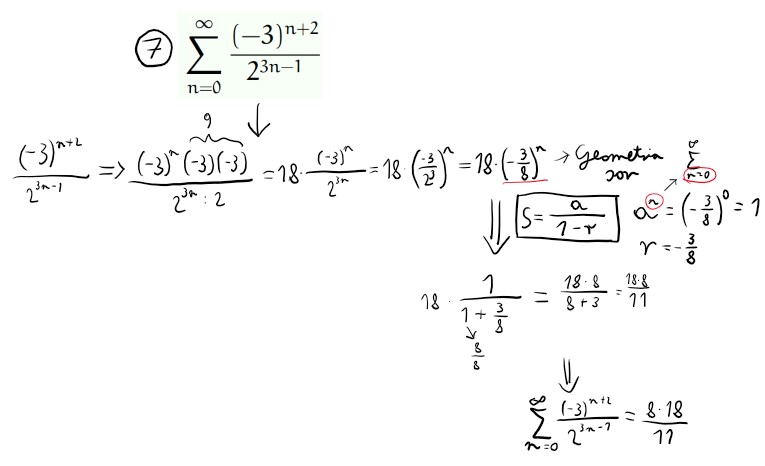 ⑦ \sum_{n=0}^{\infty} \frac{(-3)^{n+2}}{2^{3n-1}}
\frac{(-3)^{n+2}}{2^{3n-1}} => \frac{(-3)^n \overbrace{(-3)(-3)}^{9}}{2^{3n} : 2} = 18 \cdot \frac{(-3)^n}{2^{3n}} = 18 \cdot \left(\frac{-3}{2^3}\right)^n = 18 \cdot \left(-\frac{3}{8}\right)^n → Geometria \sum_{n=0}^{\infty}
sor
S = \frac{a}{1-r} a^n = \left(-\frac{3}{8}\right)^0 = 1
r = -\frac{3}{8}
18 \cdot \frac{1}{1 + \frac{3}{8}} = \frac{18 \cdot 8}{8+3} = \frac{18 \cdot 8}{11}
\frac{8}{8}
\sum_{n=0}^{\infty} \frac{(-3)^{n+2}}{2^{3n-1}} = \frac{8 \cdot 18}{11}